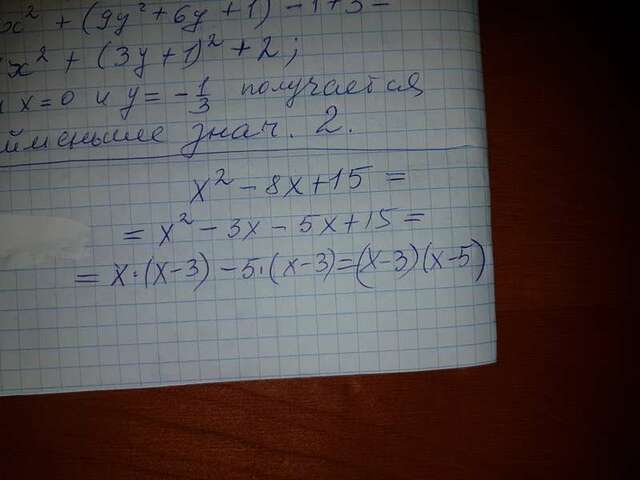 x² + (9y² + 6y + 1) - 1 + 3 =
x² + (3y + 1)² + 2;
x = 0 и y = -1/3 получается
знач. 2.
x² - 8x + 15 =
= x² - 3x - 5x + 15 =
= x·(x-3) - 5·(x-3) = (x-3)(x-5)